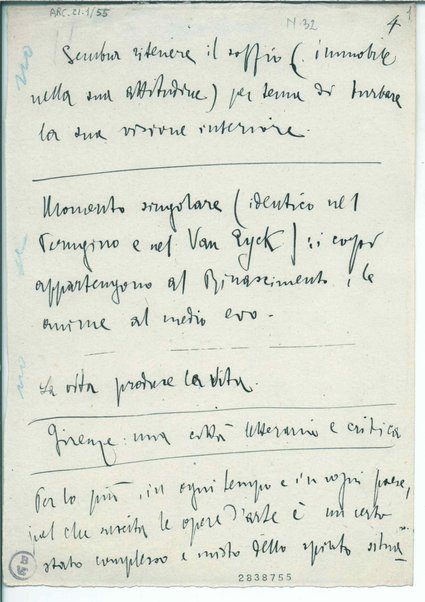 ARC.21.1/55
N.32
4
Sembra ritenere il soffio (immobile
nella sua attitudine) per tema di turbare
la sua visione interiore.
Momento singolare (identico nel
Perugino e nel Van Eyck): i corpi
appartengono al Rinascimento, le
anime al medio evo.
La vita produce la vita.
Firenze: una città letteraria e critica
Per lo più, in ogni tempo e in ogni paese,
quel che suscita le opere d'arte è un certo
stato complesso e misto dello spirito
2838755